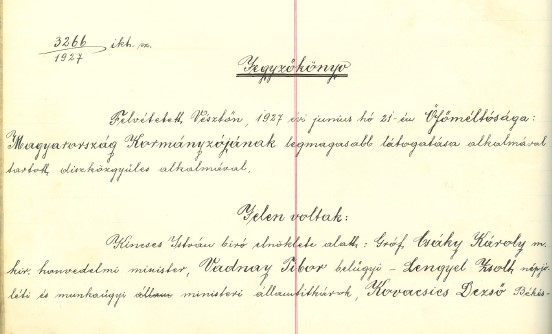 3266
1927 ikt. sz.
Jegyzőkönyv
Felvétetett Vésztőn, 1927 évi junius hó 21-én Őfőméltósága:
Magyarország Kormányzójának legmagasabb látogatása alkalmával
tartott diszközgyülés alkalmával.
Jelen voltak:
Kincses István biró elnöklete alatt: Gróf Csáky Károly m.
kir. honvédelmi minister, Vadnay Tibor belügyi - Lengyel Zsolt népjó-
léti és munkaügyi állam ministeri államtitkárok, Kovacsics Dezső Békés-